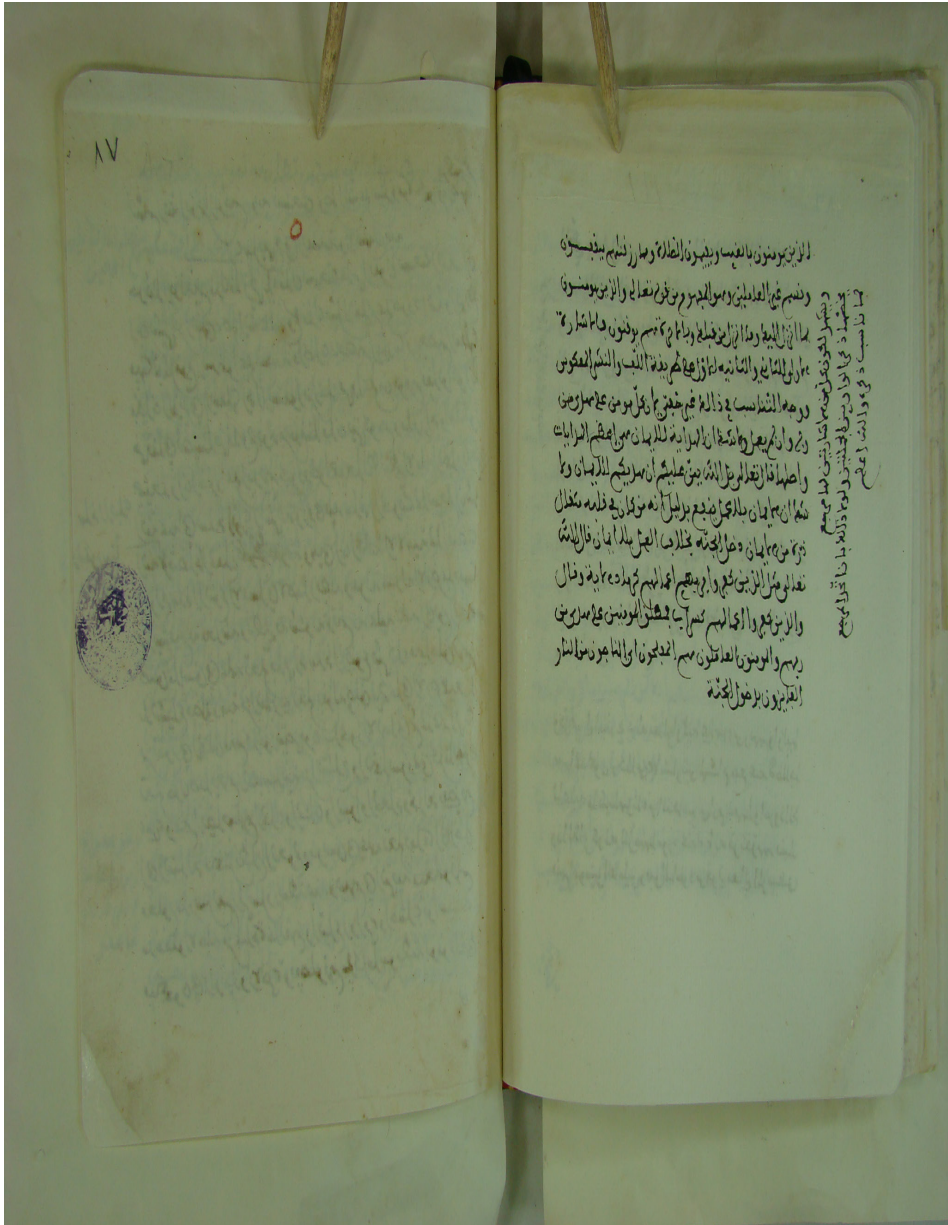 ٨٧
الذين يومنون بالغيب ويقيمون الصلاة ومما رزقنهم ينفقون
وقسم غير العاملين وهو المفهوم من قوله تعالى والذين يومنون
بما انزل اليك وما انزل من قبلك وبالاخرة هم يوقنون والاشارة
الاولى للثاني والثانية للاول على طريقة اللف والنشر المعكوس
ووجه التناسب في ذلك فيه خفى لان كل مومن على هدى من
ربه وان لم يعمل ولا شك ان الهداية للايمان هي اعظم الهدايات
واصلها قال تعالى بل الله يمن عليكم أن هديكم للايمان ولا
شك ان الايمان بلا عمل ينفع بدليل أنه من كان في قلبه مثقال
ذرة من الايمان دخل الجنة بخلاف العمل بلا ايمان قال الله
تعالى مثل الذين كفروا بربهم اعمالهم كرماد الاية وقال
والذين كفروا اعمالهم كسراب فمطلق المومنين على هدى من
ربهم والمومنون العاملون هم المفلحون اى الناجون من النار
الفايزون بدخول الجنة